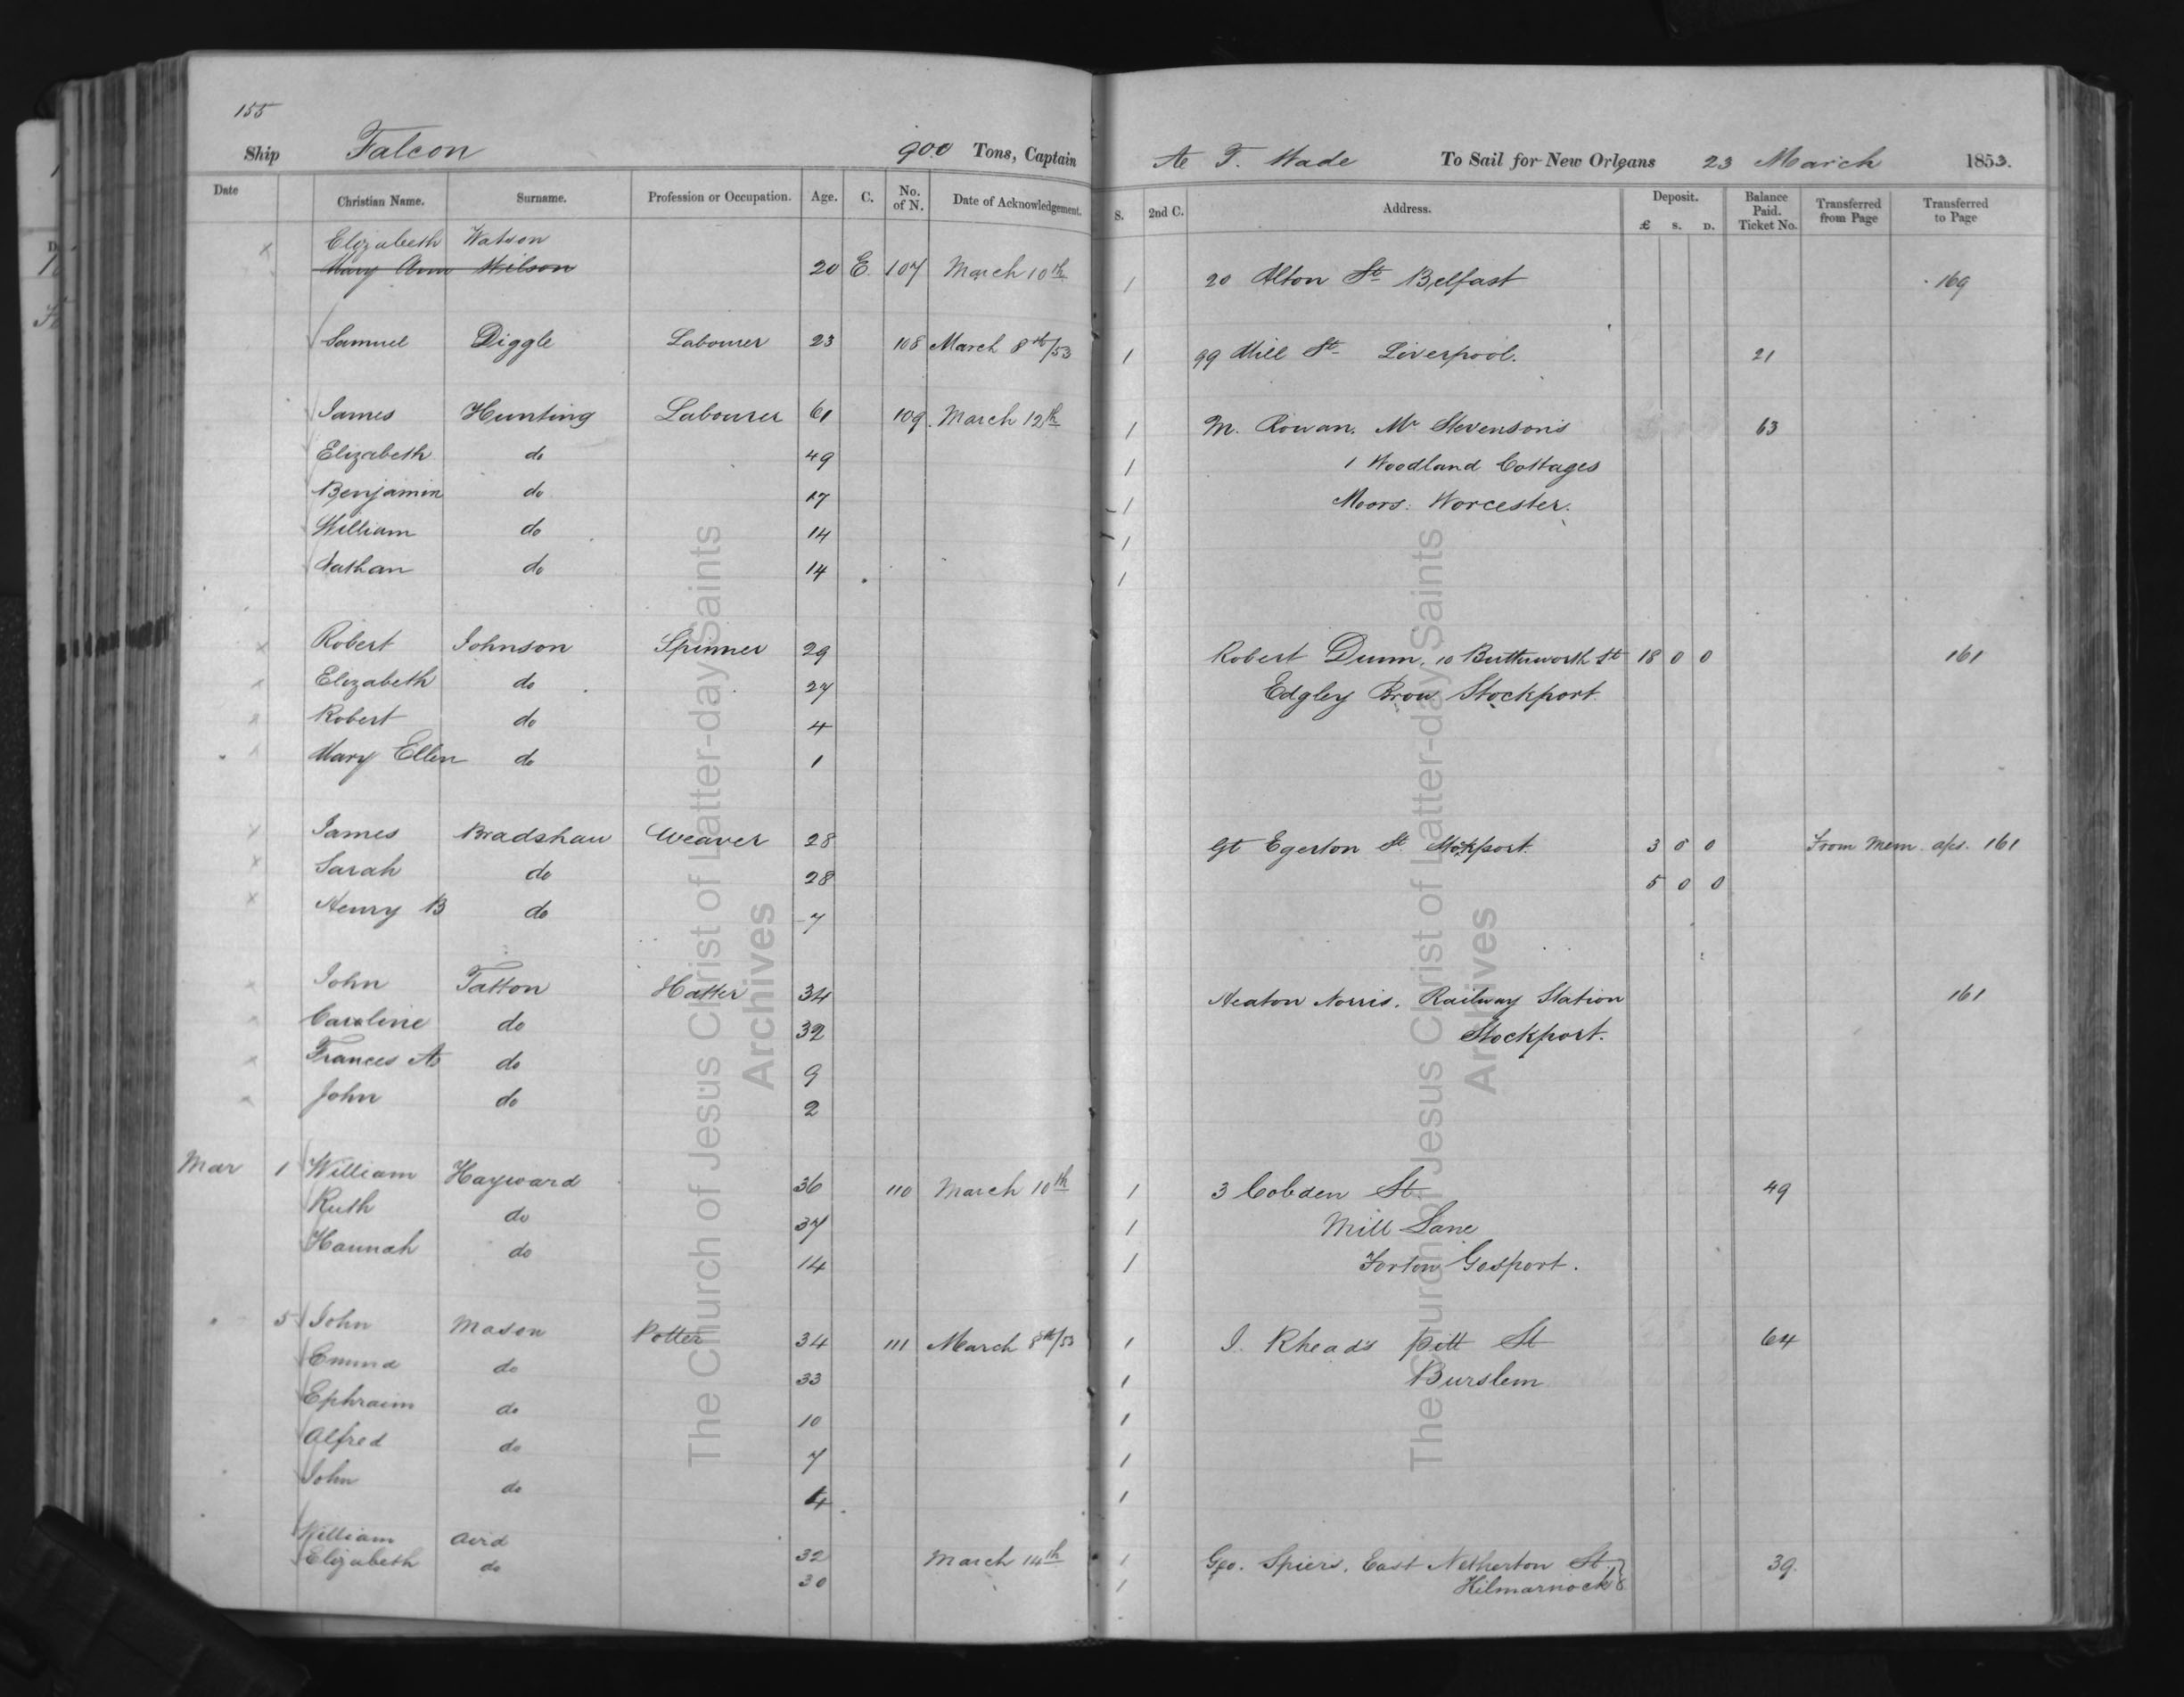 155
Ship Falcon 900 Tons, Captain A T. Wade To Sail for New Orleans 23 March 1853.
Date Christian Name. Surname. Profession or Occupation. Age. C. No. of N. Date of Acknowledgement. S. 2nd C. Address. Deposit. £ S. D. Balance Paid. Ticket No. Transferred from Page Transferred to Page
x Elizabeth Watson
Mary Ann Wilson 20 E. 107 March 10th 1 20 Alton St Belfast 169
Samuel Diggle Labourer 23 108 March 8th/53 1 99 Mill St Liverpool. 21
James Hunting Labourer 61 109. March 12th 1 M. Rowan. Mr Stevenson's 63
Elizabeth do 49 1 1 Woodland Cottages
Benjamin do 17 1 Moors. Worcester.
William do 14 1
Nathan do 14 1
x Robert Johnson Spinner 29 Robert Dunn, 10 Butterworth St 18 0 0 161
Elizabeth do 27 Edgley Brow Stockport
Robert do 4
Mary Ellen do 1
x James Bradshaw Weaver 28 Gt Egerton St Stockport. 3 0 0 From Mem. 161
x Sarah do 28 5 0 0
x Henry B do 7
John Tatton Hatter 34 Heaton Norris. Railway Station 161
Caroline do 32 Stockport.
Frances A do 9
John do 2
Mar 1 William Hayward 36 110 March 10th 1 3 Cobden St. 49
Ruth do 37 1 Mill Lane
Hannah do 14 1 Forton Gosport.
5 John Mason Potter 34 111 March 8th/53 1 J. Rhead's Pitt St 64
Emma do 33 1 Burslem
Ephraim do 10 1
Alfred do 7 1
John do 4 1
William Aird 32 March 14th 1 Geo. Spiers, East Netherton St. 39.
Elizabeth do 30 1 Kilmarnock
The Church of Jesus Christ of Latter-day Saints
Archives
The Church of Jesus Christ of Latter-day Saints
Archives